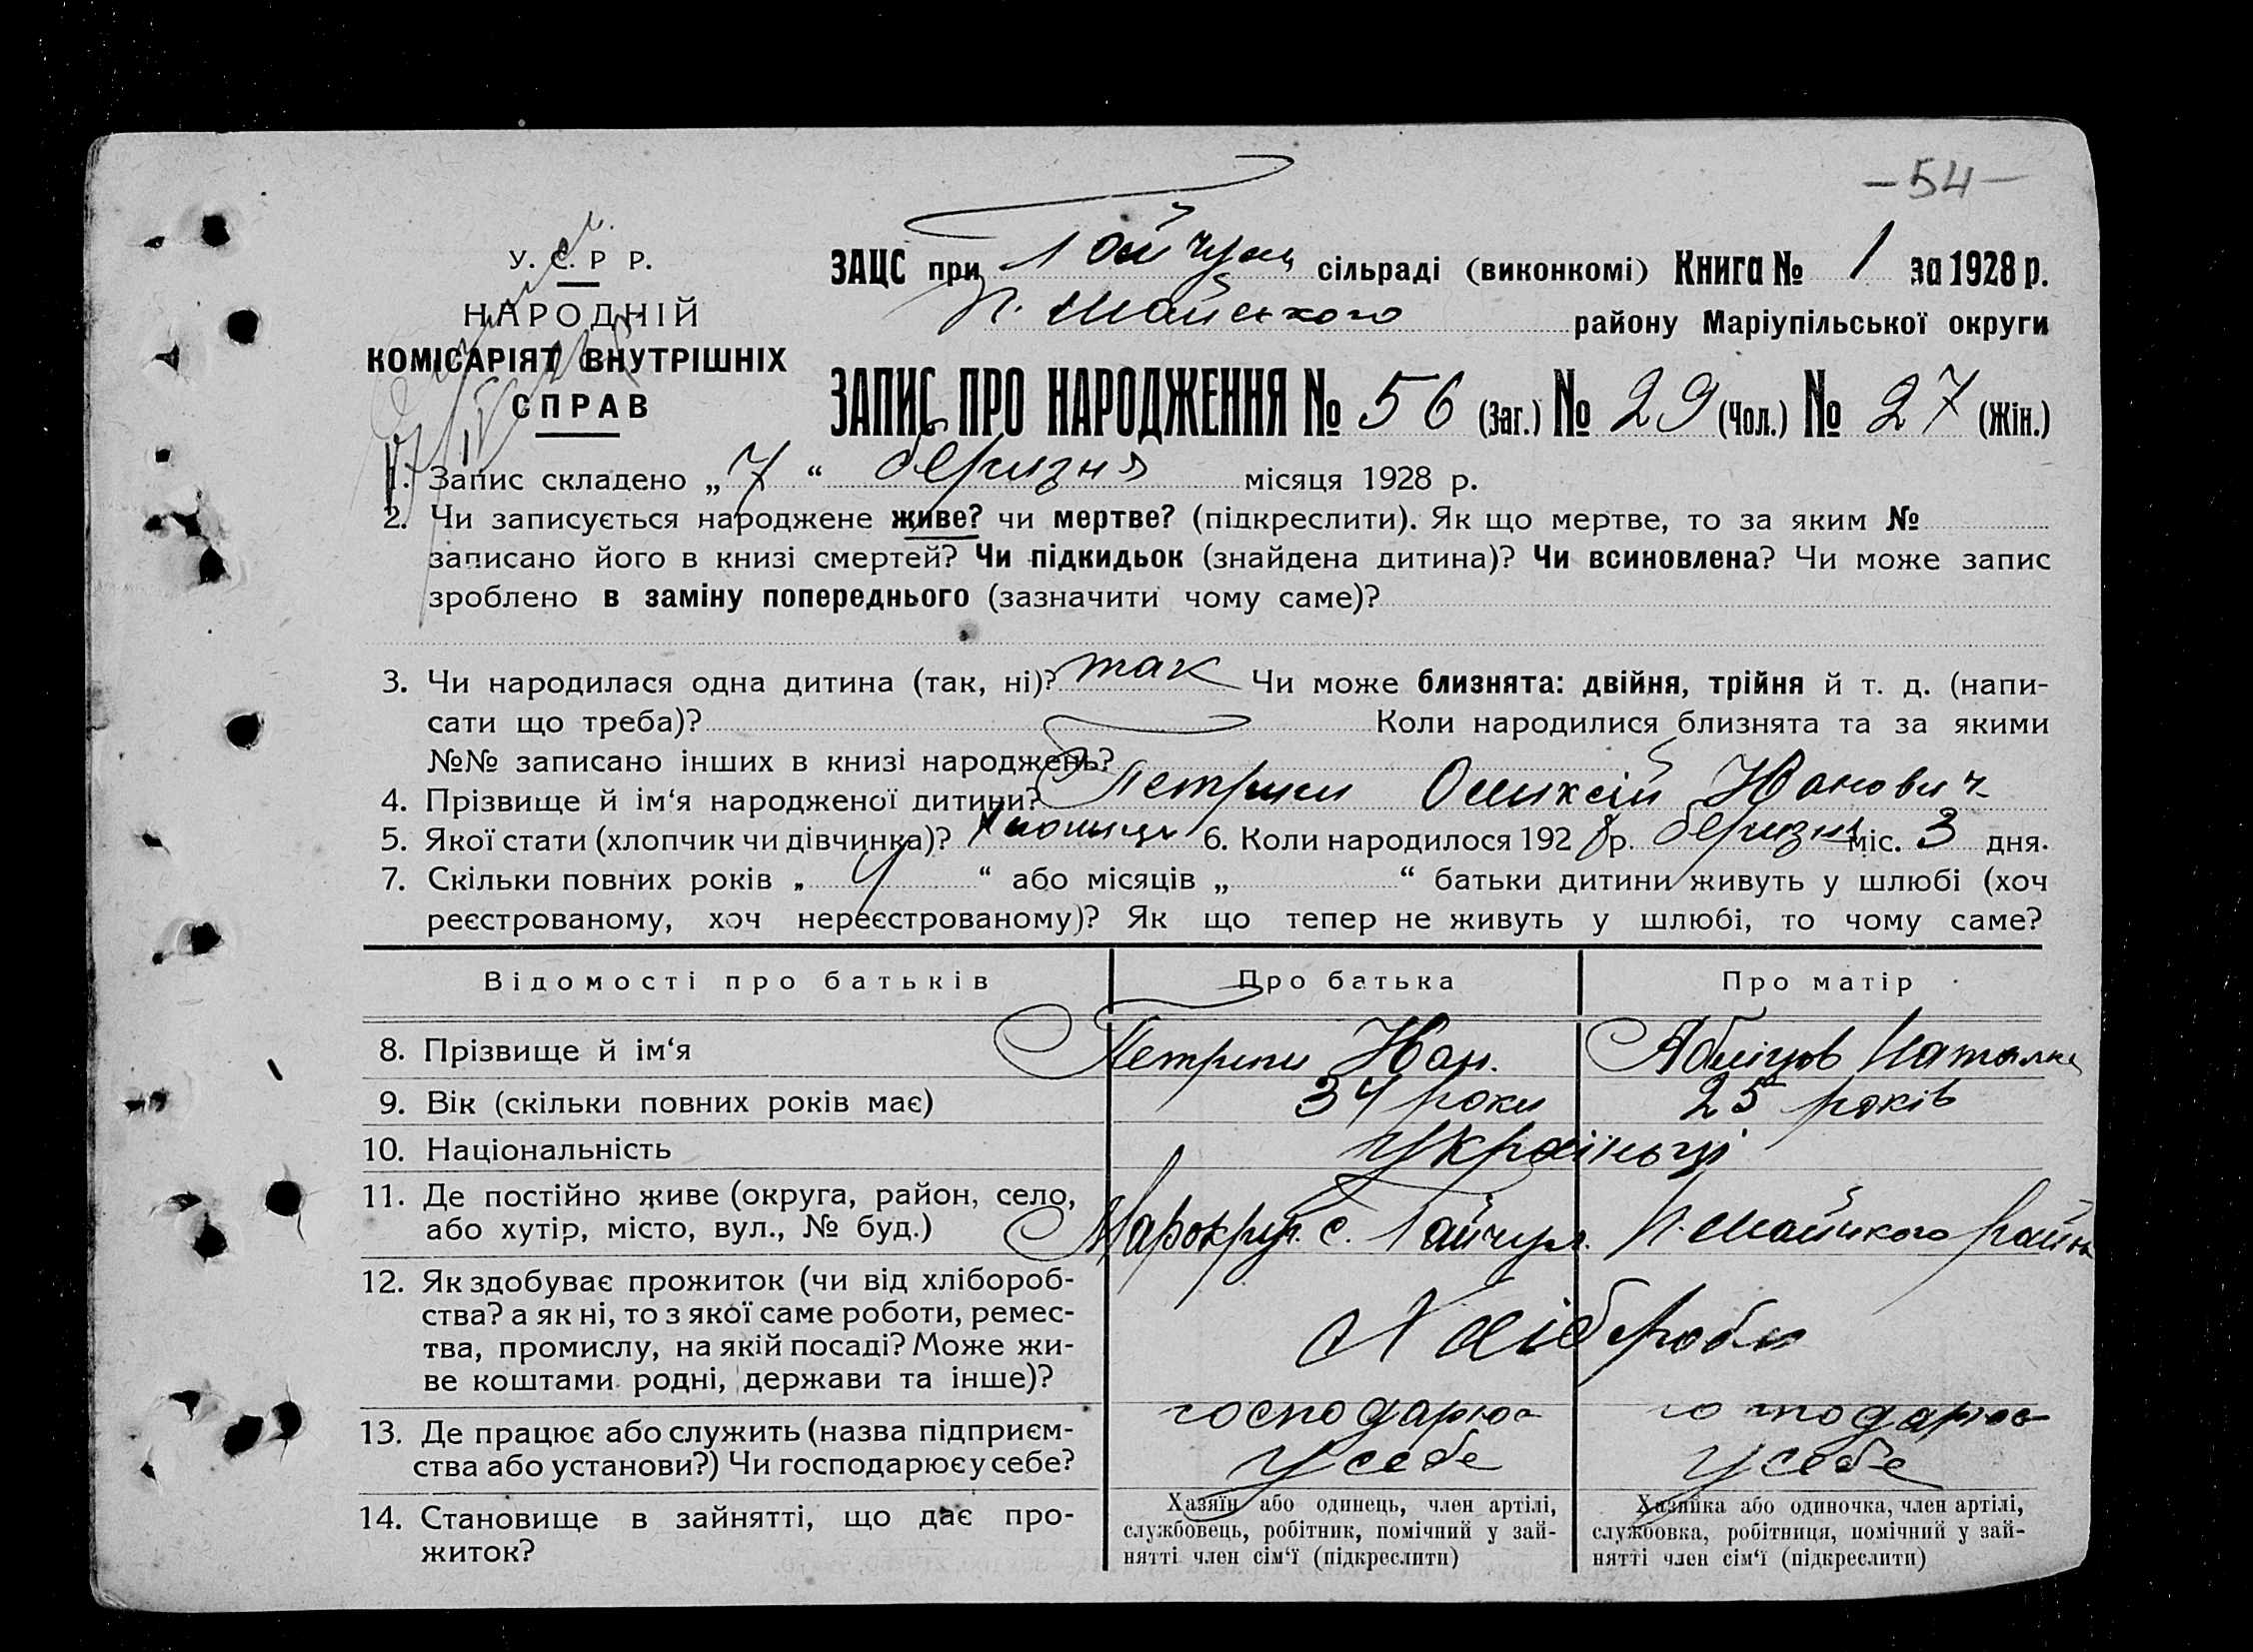 — 54 —
У. С. Р Р.
НАРОДНІЙ
КОМІСАРІЯТ ВНУТРІШНІХ
СПРАВ
ЗАЦС при Гайчул сільраді (виконкомі) Книга № 1 за 1928 р.
П. Майського району Маріупільської округи
ЗАПИС ПРО НАРОДЖЕННЯ № 56 (Заг.) № 29 (Чол.) № 27 (Жін.)
1. Запис складено „ 7 “ березня місяця 1928 р.
2. Чи записується народжене живе? чи мертве? (підкреслити). Як що мертве, то за яким №
записано його в книзі смертей? Чи підкидьок (знайдена дитина)? Чи всиновлена? Чи може запис
зроблено в заміну попереднього (зазначити чому саме)?
3. Чи народилася одна дитина (так, ні)? так Чи може близнята: двійня, трійня й т. д. (напи-
сати що треба)? Коли народилися близнята та за якими
№№ записано інших в книзі народжень?
4. Прізвище й ім‘я народженої дитини? Иванович
5. Якої стати (хлопчик чи дівчинка)? 6. Коли народилося 1928 р. березня міс. 3 дня.
7. Скільки повних років „ 4 “ або місяців „ “ батьки дитини живуть у шлюбі (хоч
реєстрованому, хоч нереєстрованому)? Як що тепер не живуть у шлюбі, то чому саме?
Відомості про батьків Про батька Про матір
8. Прізвище й ім‘я Иван. Наталка
9. Вік (скільки повних років має) 34 роки 25 років
10. Національність україньці
11. Де постійно живе (округа, район, село, або хутір, місто, вул., № буд.) Марокруг. с. Гайчул. П. Майського району
12. Як здобуває прожиток (чи від хлібороб-
ства? а як ні, то з якої саме роботи, ремес-
тва, промислу, на якій посаді? Може жи-
ве коштами родні, держави та інше)? Хлібороби
13. Де працює або служить (назва підприєм-
ства або установи?) Чи господарює у себе? господарює у себе господарює у себе
14. Становище в зайнятті, що дає про-
житок?
Хазяїн або одинець, член артілі,
службовець, робітник, помічний у зай-
нятті член сім‘ї (підкреслити)
Хазяйка або одиночка, член артілі,
службовка, робітниця, помічний у зай-
нятті член сім‘ї (підкреслити)